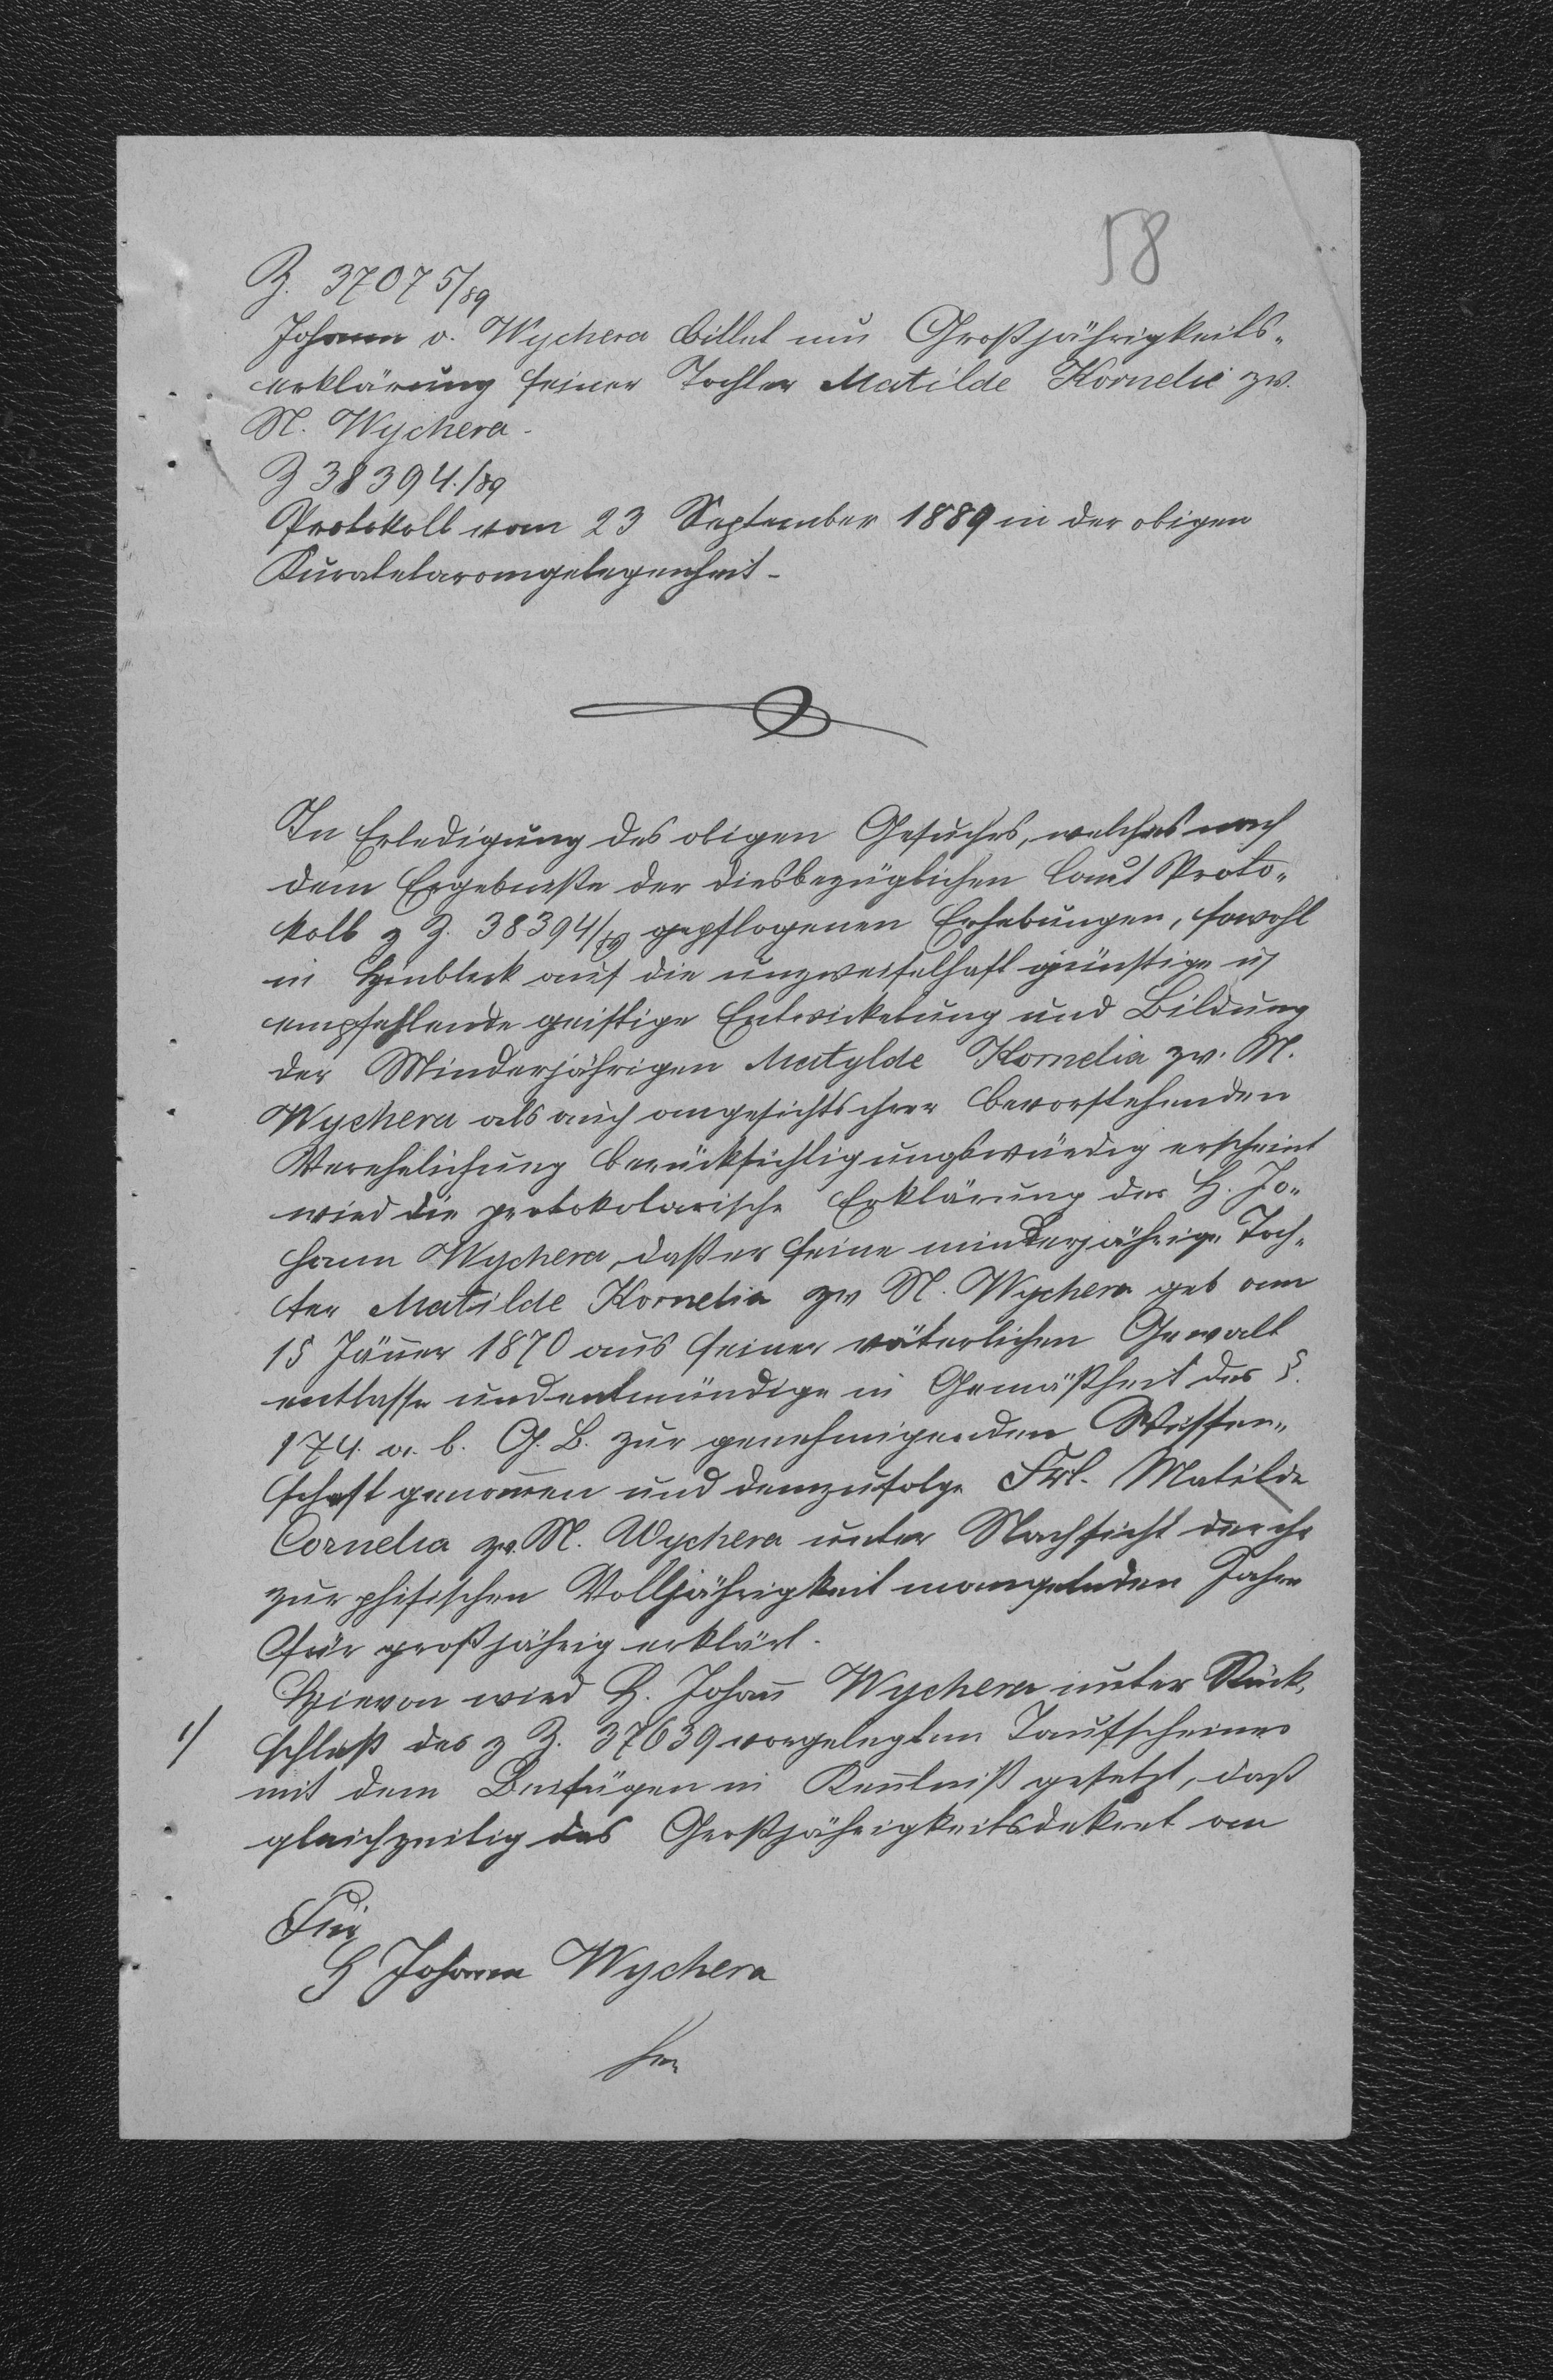 58
Z. 37075/89
Johann v. Wychera bittet um Großjährigkeits-
erklärung seiner Tochter Matilde Kornelie zw.
N. Wychera.
Z 38394./89
Protokoll vom 23 September 1889 in der obigen
Kuratelarangelegenheit.
In Erledigung des obigen Gesuches, welches nach
dem Ergebniße der diesbezüglichen laut Proto-
koll z Z. 38394/89 gepflogenen Erhebungen, sowohl
in Hinblick auf die unzweifelhaft günstige u
empfehlende geistige Entwickelung und Bildung
der Minderjährigen Matylde Kornelia zw. N.
Wychera als auch angesichts ihrer bevorstehenden
Verehelichung berücksichtigungswürdig erscheint
wird die protokolarische Erklärung des H. Jo-
hann Wychera, daß er seine minderjährige Toch-
ter Matilde Kornelia zw N. Wychera geb am
15 Jänner 1870 aus seiner väterlichen Gewalt
entlasse und entmündige in Gemäßheit des §.
174. a. b. G. B. zur genehmigenden Wissen-
schaft genom̄en und demzufolge Frl. Matilde
Cornelia zw. N. Wychera unter Nachsicht der ihr
zur phisischen Volljährigkeit mangelnden Jahre
für großjährig erklärt.
Hievon wird H. Johan̄ Wychera unter Rück-
1/ schluß des z Z. 37639 vorgelegten Taufscheines
mit dem Beifügen in Ken̄tniß gesetzt, daß
gleichzeitig das Großjährigkeitsdekret an
Für
H Johann Wychera